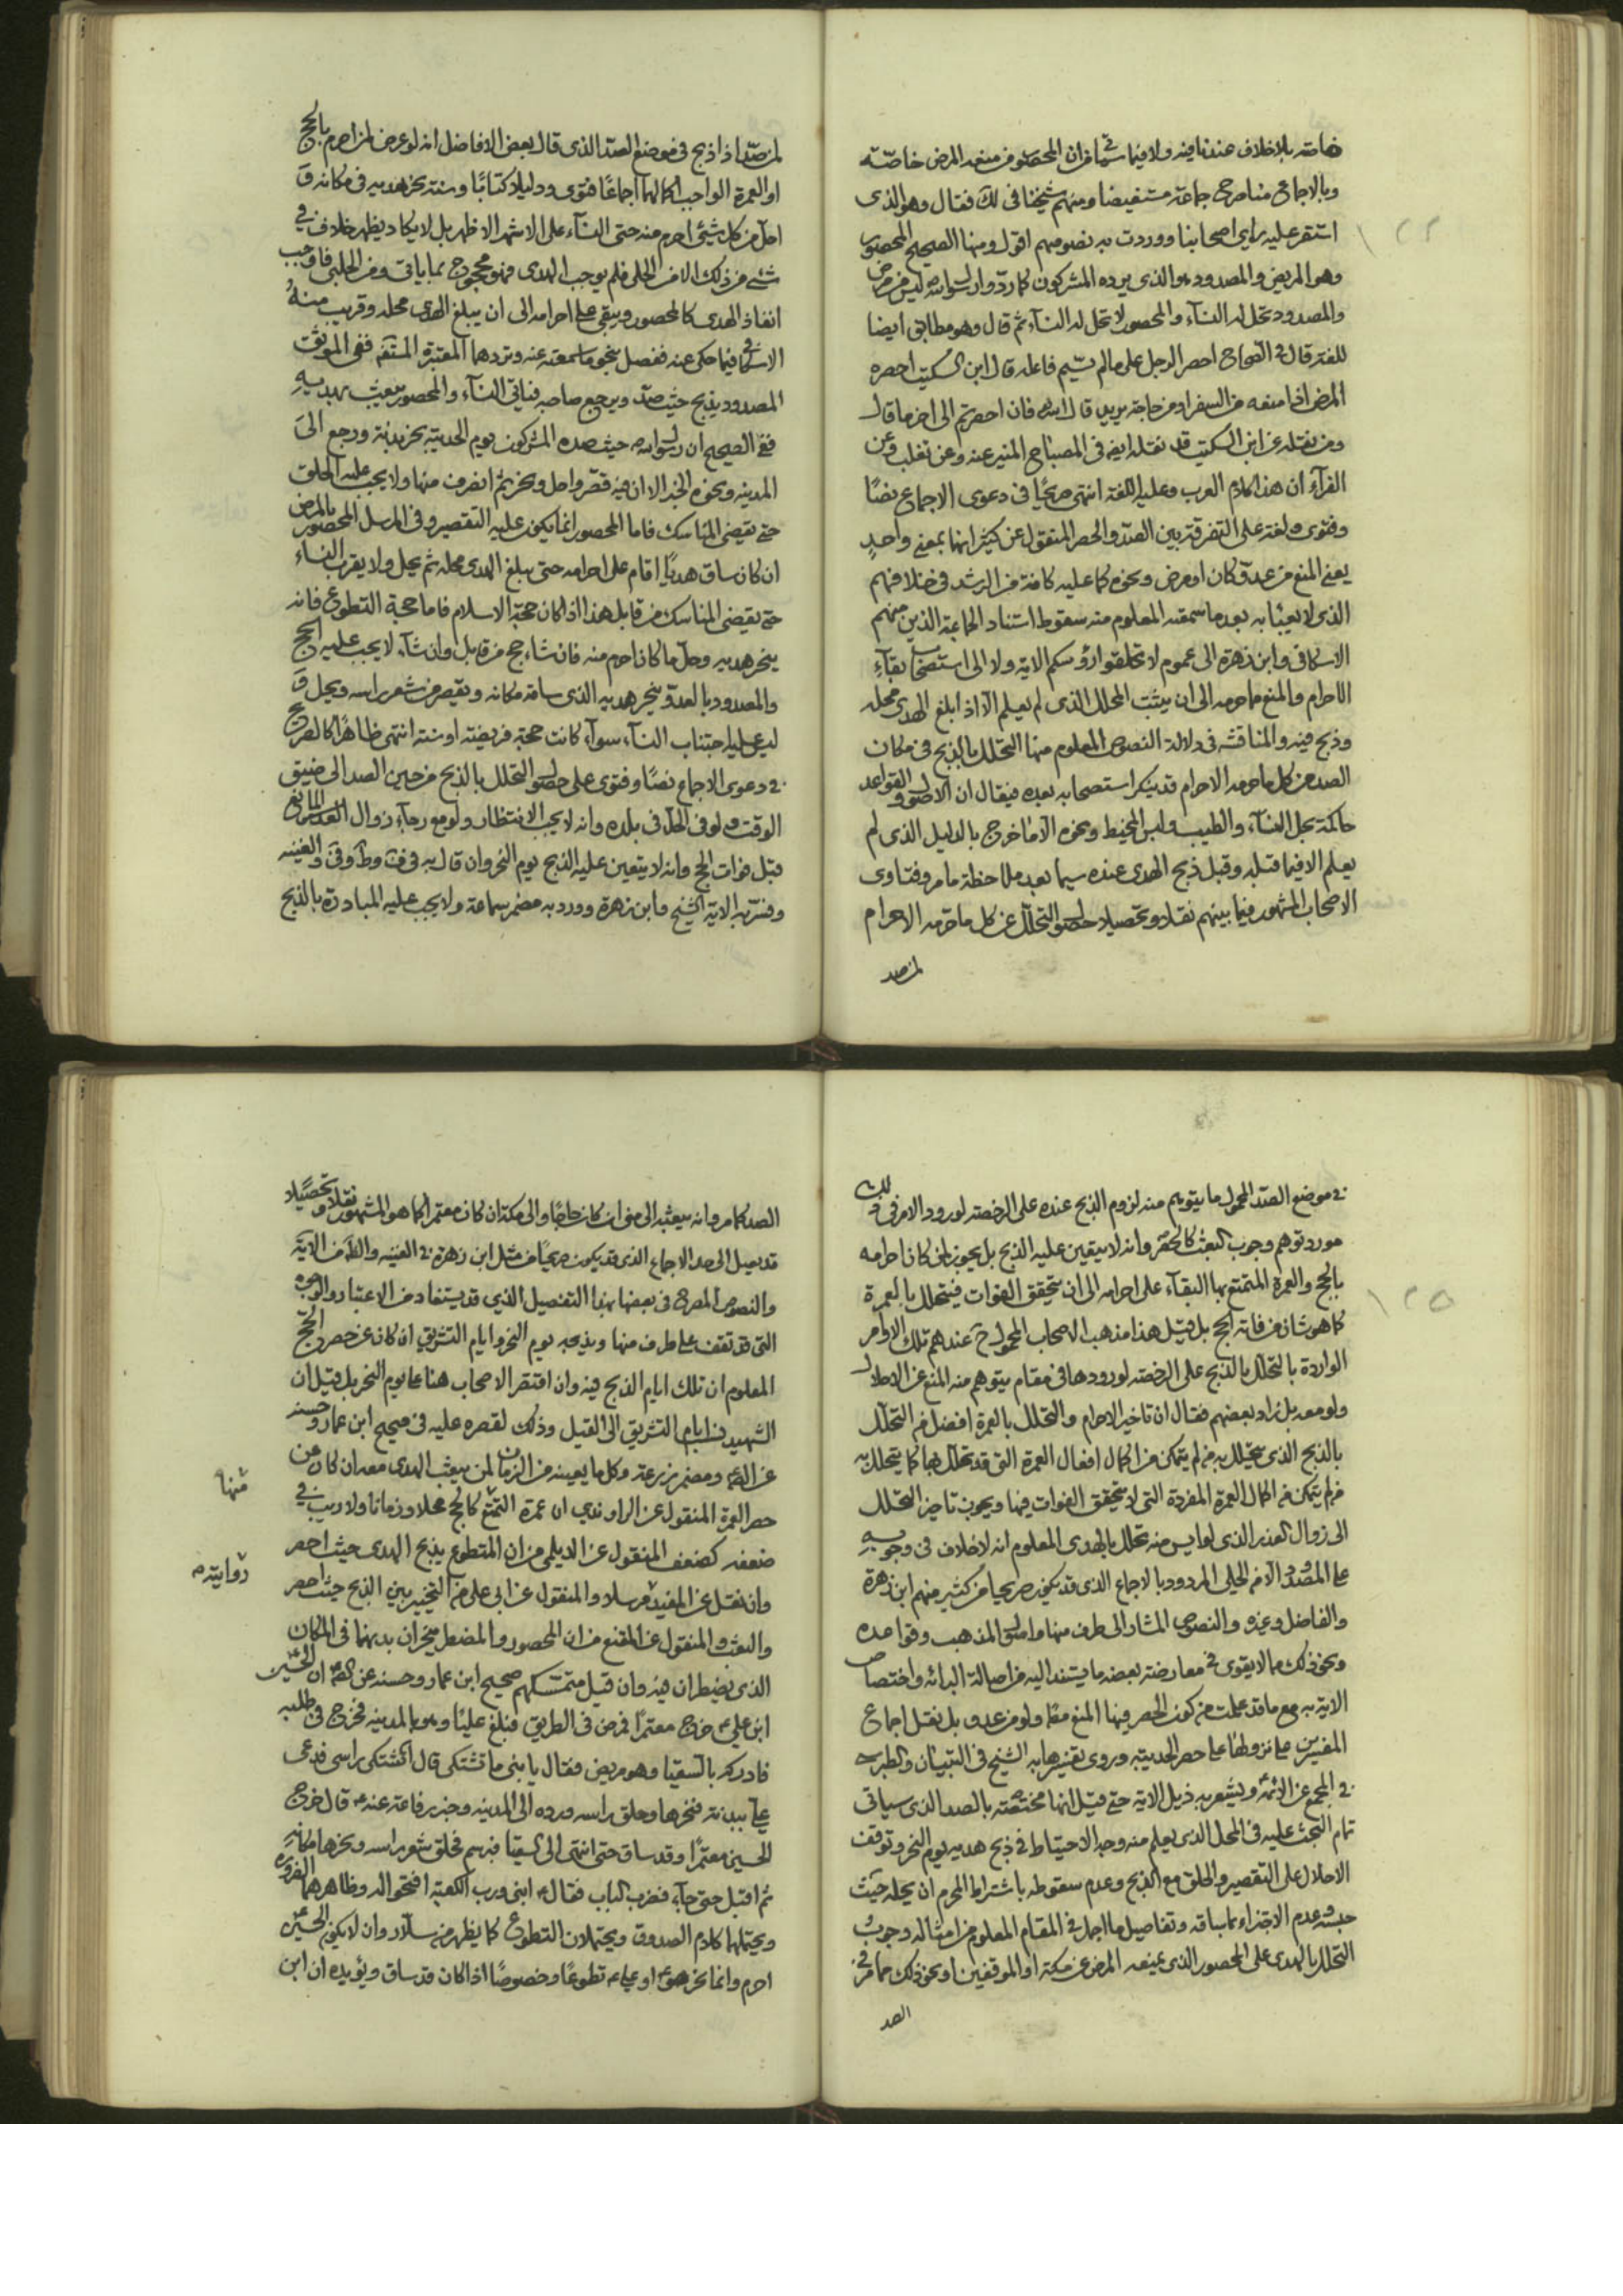 خاصة بلا خلاف عندنا فيه ولا فيما سمعته من ان المحصور من منعه المرض خاصة
وبالاجماع هنا صرح جماعة مستفيضا ومنهم شيخنا في لك فقال وهو الذي
استقر عليه راي اصحابنا ووردت به نصوصهم اقول ومنها الصحيح المحصور
وهو المريض والمصدود هو الذي يرده المشركون كما ردوا رسول الله ليس من مرض
والمصدود تحل له النساء والمحصور لا تحل له النساء ثم قال وهو مطابق ايضا
للغة قال في الصحاح احصر الرجل على ما لم يسم فاعله قال ابن السكيت احصره
المرض اذا منعه من السفر او من حاجة يريدها قال الله فان احصرتم الى اخر ما قال
ومن نقله عن ابن السكيت قد نقله ايضا في المصباح المنير عنه وعن تغلب وعن
الفراء ان هذا كلام العرب وعليه اللغة انتهى صريحا في دعوى الاجماع نصا
وفتوى ولغة على التفرقة بين الصد والحصر المنقول عن كثير انهما بمعنى واحد
يعني المنع من عدو كان او مرض ونحوه كما عليه كافة من الرشد في خلافهم
الذي لا يعبأ به بعد ما سمعته المعلوم منه سقوط استناد الجماعة الذين منهم
الاسكافي وابن زهرة الى عموم لا تحلقوا رؤسكم الاية ولا الى استصحاب بقاء
الاحرام والمنع مما حرمه الى ان يثبت المحلل الذي لم يعلم الا اذا بلغ الهدي محله
وذبح فيه والمناقشة في دلالة النصوص المعلوم منها التحلل بالذبح في مكان
الصد من كل ما حرمه الاحرام قد ينكر استصحابه بعده فيقال ان الاصول والقواعد
حاكمة بحل النساء والطيب ولبس المخيط ونحوه الا ما خرج بالدليل الذي لم
يعلم الا فيما قبله وقبل ذبح الهدي عنده سيما بعد ملاحظة ما مر وفتاوى
الاصحاب المشهور فيما بينهم نقلا وتحصيلا حصول التحلل عن كل ما حرمه الاحرام
لمن صد
لمن صد اذا ذبح في موضع الصد الذي قال بعض الافاضل انه لو عرض لمن احرم بالحج
او العمرة الواجب اكمالهما اجماعا فتوى ودليلا كتابا وسنة نحر هديه في مكانه و
احل من كل شيء احرم منه حتى النساء على الاشهر الاظهر بل لا يكاد يظهر خلاف في
شيء من ذلك الا من الحلي فلم يوجب الهدي فهو محجوج بما ياتي ومن الحلبي فاوجب
انفاذ الهدي كالمحصور ويبقى على احرامه الى ان يبلغ الهدي محله وقريب منه
الاسكافي فيما حكي عنه ففصل بنحو ما سمعته عنه ويردهما المعتبرة المستقيم ففي الموثق
المصدود يذبح حيث صد ويرجع صاحبه فياتي النساء والمحصور يبعث بهديه
ففي الصحيح ان رسول الله حيث صده المشركون يوم الحديبية نحر بدنة ورجع الى
المدينة ونحوه الخبر الا ان فيه قصر واحل ونحر ثم انصرف منها ولا يجب عليه الحلق
حتى يقضي المناسك فاما المحصور انما يكون عليه التقصير وفي المرسل المحصور بالمرض
ان كان ساق هديا اقام على احرامه حتى يبلغ الهدي محله ثم يحل ولا يقرب النساء
حتى يقضي المناسك من قابل هذا اذا كان حجة الاسلام فاما حجة التطوع فانه
ينحر هديه وحل ما كان احرم منه فان شاء حج من قابل وان شاء لا يجب عليه الحج
والمصدود بالعدو ينحر هديه الذي ساقه مكانه ويقصر من شعر راسه ويحل و
ليس عليه اجتناب النساء سواء كانت حجته فريضة او سنة انتهى ظاهرا كالصريح
في دعوى الاجماع نصا وفتوى على حصول التحلل بالذبح من حين الصد الى ضيق
الوقت ولو في الحل في بلده وانه لا يجب الانتظار ولو مع رجاء زوال العذر المانع
قبل فوات الحج وانه لا يتعين عليه الذبح يوم النحر وان قال به في ف وط وق والغنية
وفسر به الاية الشيخ وابن زهرة وورد به مضمر سماعة ولا يجب عليه المبادرة بالذبح
في موضع الصد المحمول ما يتوهم منه لزوم الذبح عنده على الرخصة لورود الامر في ذلك
مورد توهم وجوب البعث كالحصر وانه لا يتعين عليه الذبح بل يجوز لمن كان احرامه
بالحج والعمرة المتمتع بها البقاء على احرامه الى ان يتحقق الفوات فيتحلل بالعمرة
كما هو شان من فاته الحج بل قيل هذا مذهب الاصحاب المحمول ح عندهم تلك الاوامر
الواردة بالتحلل بالذبح على الرخصة لورودها في مقام يتوهم منه المنع عن الاحلال
ولو معه بل زاد بعضهم فقال ان تاخير الاحرام والتحلل بالعمرة افضل من التحلل
بالذبح الذي يتحلل به من لم يتمكن من اكمال افعال العمرة التي قد تحلل بها كما يتحلل به
من لم يتمكن من اكمال العمرة المفردة التي لا يتحقق الفوات فيها ويجوب تاخير التحلل
الى زوال العذر الذي لو ايس منه تحلل بالهدي المعلوم انه لا خلاف في وجوبه
على المصدود الا من الحلي المردود بالاجماع الذي قد يكون صريحا من كثير منهم ابن زهرة
والفاضل وغيره والنصوص المشار الى طرف منها واصول المذهب وقواعده
ونحو ذلك مما لا يقوى في معارضة بعضه ما يستند اليه من اصالة البرائة واختصاص
الاية به مع ما قد علمت من كون الحصر فيها المنع مطلقا ولو من عدو بل نقل اجماع
المفسرين على نزولها على حصر الحديبية وروى تفسيرها به الشيخ في التبيان والطبرسي
في المجمع عن الائمة ويشعر به ذيل الاية حتى قيل انها مختصة بالصد الذي سياتي
تمام البحث عليه في المحل الذي يعلم منه وجه الاحتياط في ذبح هديه يوم النحر وتوقف
الاحلال على التقصير والحلق مع الذبح وعدم سقوطه باشتراط المحرم ان يحله حيث
حبسه وعدم الاجتزاء بما ساقه وتفاصيل ما اجمل في المقام المعلوم من امثاله وجوب
التحلل بالهدي على المحصور الذي يمنعه المرض عن مكة او الموقفين او نحو ذلك مما مر في
الصد
الصد كما مر وانه يبعثه الى منى ان كان حاجا والى مكة ان كان معتمرا كما هو المشهور نقلا وتحصيلا
قد يصل الى حد الاجماع الذي قد يكون صريحا من مثل ابن زهرة في الغنية والظاهر من الاية
والنصوص المصرح في بعضها بهذا التفصيل الذي قد يستفاد من الاعتبار والوجوه
التي قد تقف على طرف منها ويذبحه يوم النحر وايام التشريق ان كان عن حصر الحج
المعلوم ان تلك ايام الذبح فيه وان اقتصر الاصحاب هنا على يوم النحر بل قيل ان
الشهيد نسب ايام التشريق الى القيل وذلك لقصره عليه في صحيح ابن عمار وحسنه
عن الصادق ومضمر زرعة وكل ما يعينه من الزمان لمن يبعث الهدي معه ان كان عن
حصر العمرة المنقول عن الراوندي ان عمرة التمتع كالحج محلا وزمانا ولا ريب في
ضعفه كضعف المنقول عن الديلمي من ان المتطوع يذبح الهدي حيث احصر
وان نقل عن المفيد مرسلا والمنقول عن ابي علي من التخيير بين الذبح حيث احصر
والبعث والمنقول عن المقنع من ان المحصور والمضطر ينحران بدنهما في المكان
الذي يضطران فيه وان قيل متمسكهم صحيح ابن عمار وحسنه عن الصادق ان الحسين
ابن علي ع خرج معتمرا فمرض في الطريق فبلغ عليا وهو بالمدينة فخرج في طلبه
فادركه بالسقيا وهو مريض فقال يا بني ما تشتكي قال اشتكي راسي فدعى
علي ببدنة فنحرها وحلق راسه ورده الى المدينة وخبر رفاعة عنه ع قال خرج
الحسين معتمرا وقد ساق حتى انتهى الى السقيا فبرسم فحلق شعر راسه ونحرها مكانه
ثم اقبل حتى جاء فضرب الباب فقال ع ابني ورب الكعبة افتحوا له وظاهرهما الضرورة
ويحتملها كلام الصدوق ويحتملان التطوع كما يظهر من سلار وان لا يكون الحسين
احرم وانما نحر هو او علي ع تطوعا وخصوصا اذا كان قد ساق ويؤيده ان ابن
منها
روايته
١٢٤
١٢٥